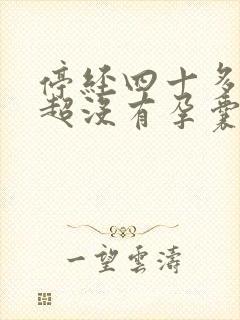 停经四十多
超没有孕囊
一望雲濤